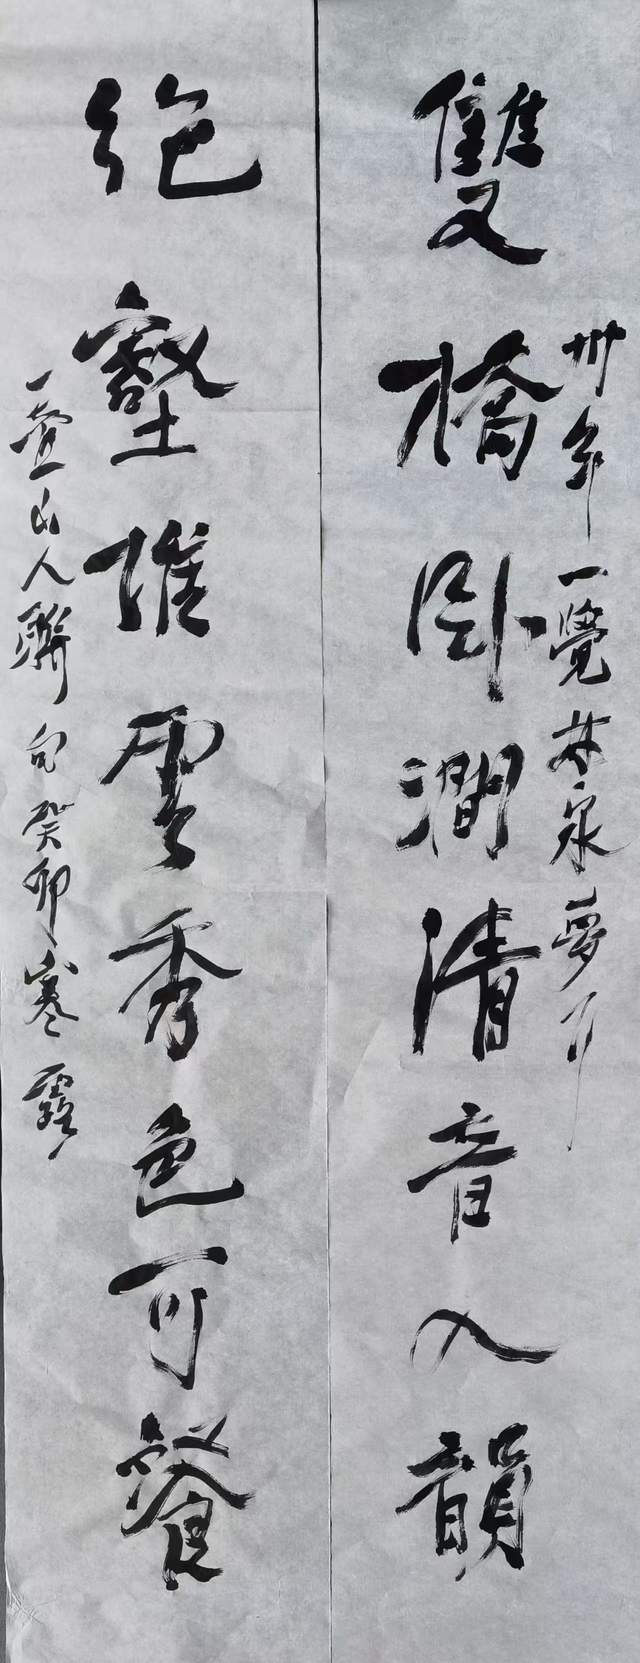 雙橋卧澗清音入韻
卅年一覺林泉夢
絶壑堆雲秀色可餐
一壺山人聯句癸卯寒露